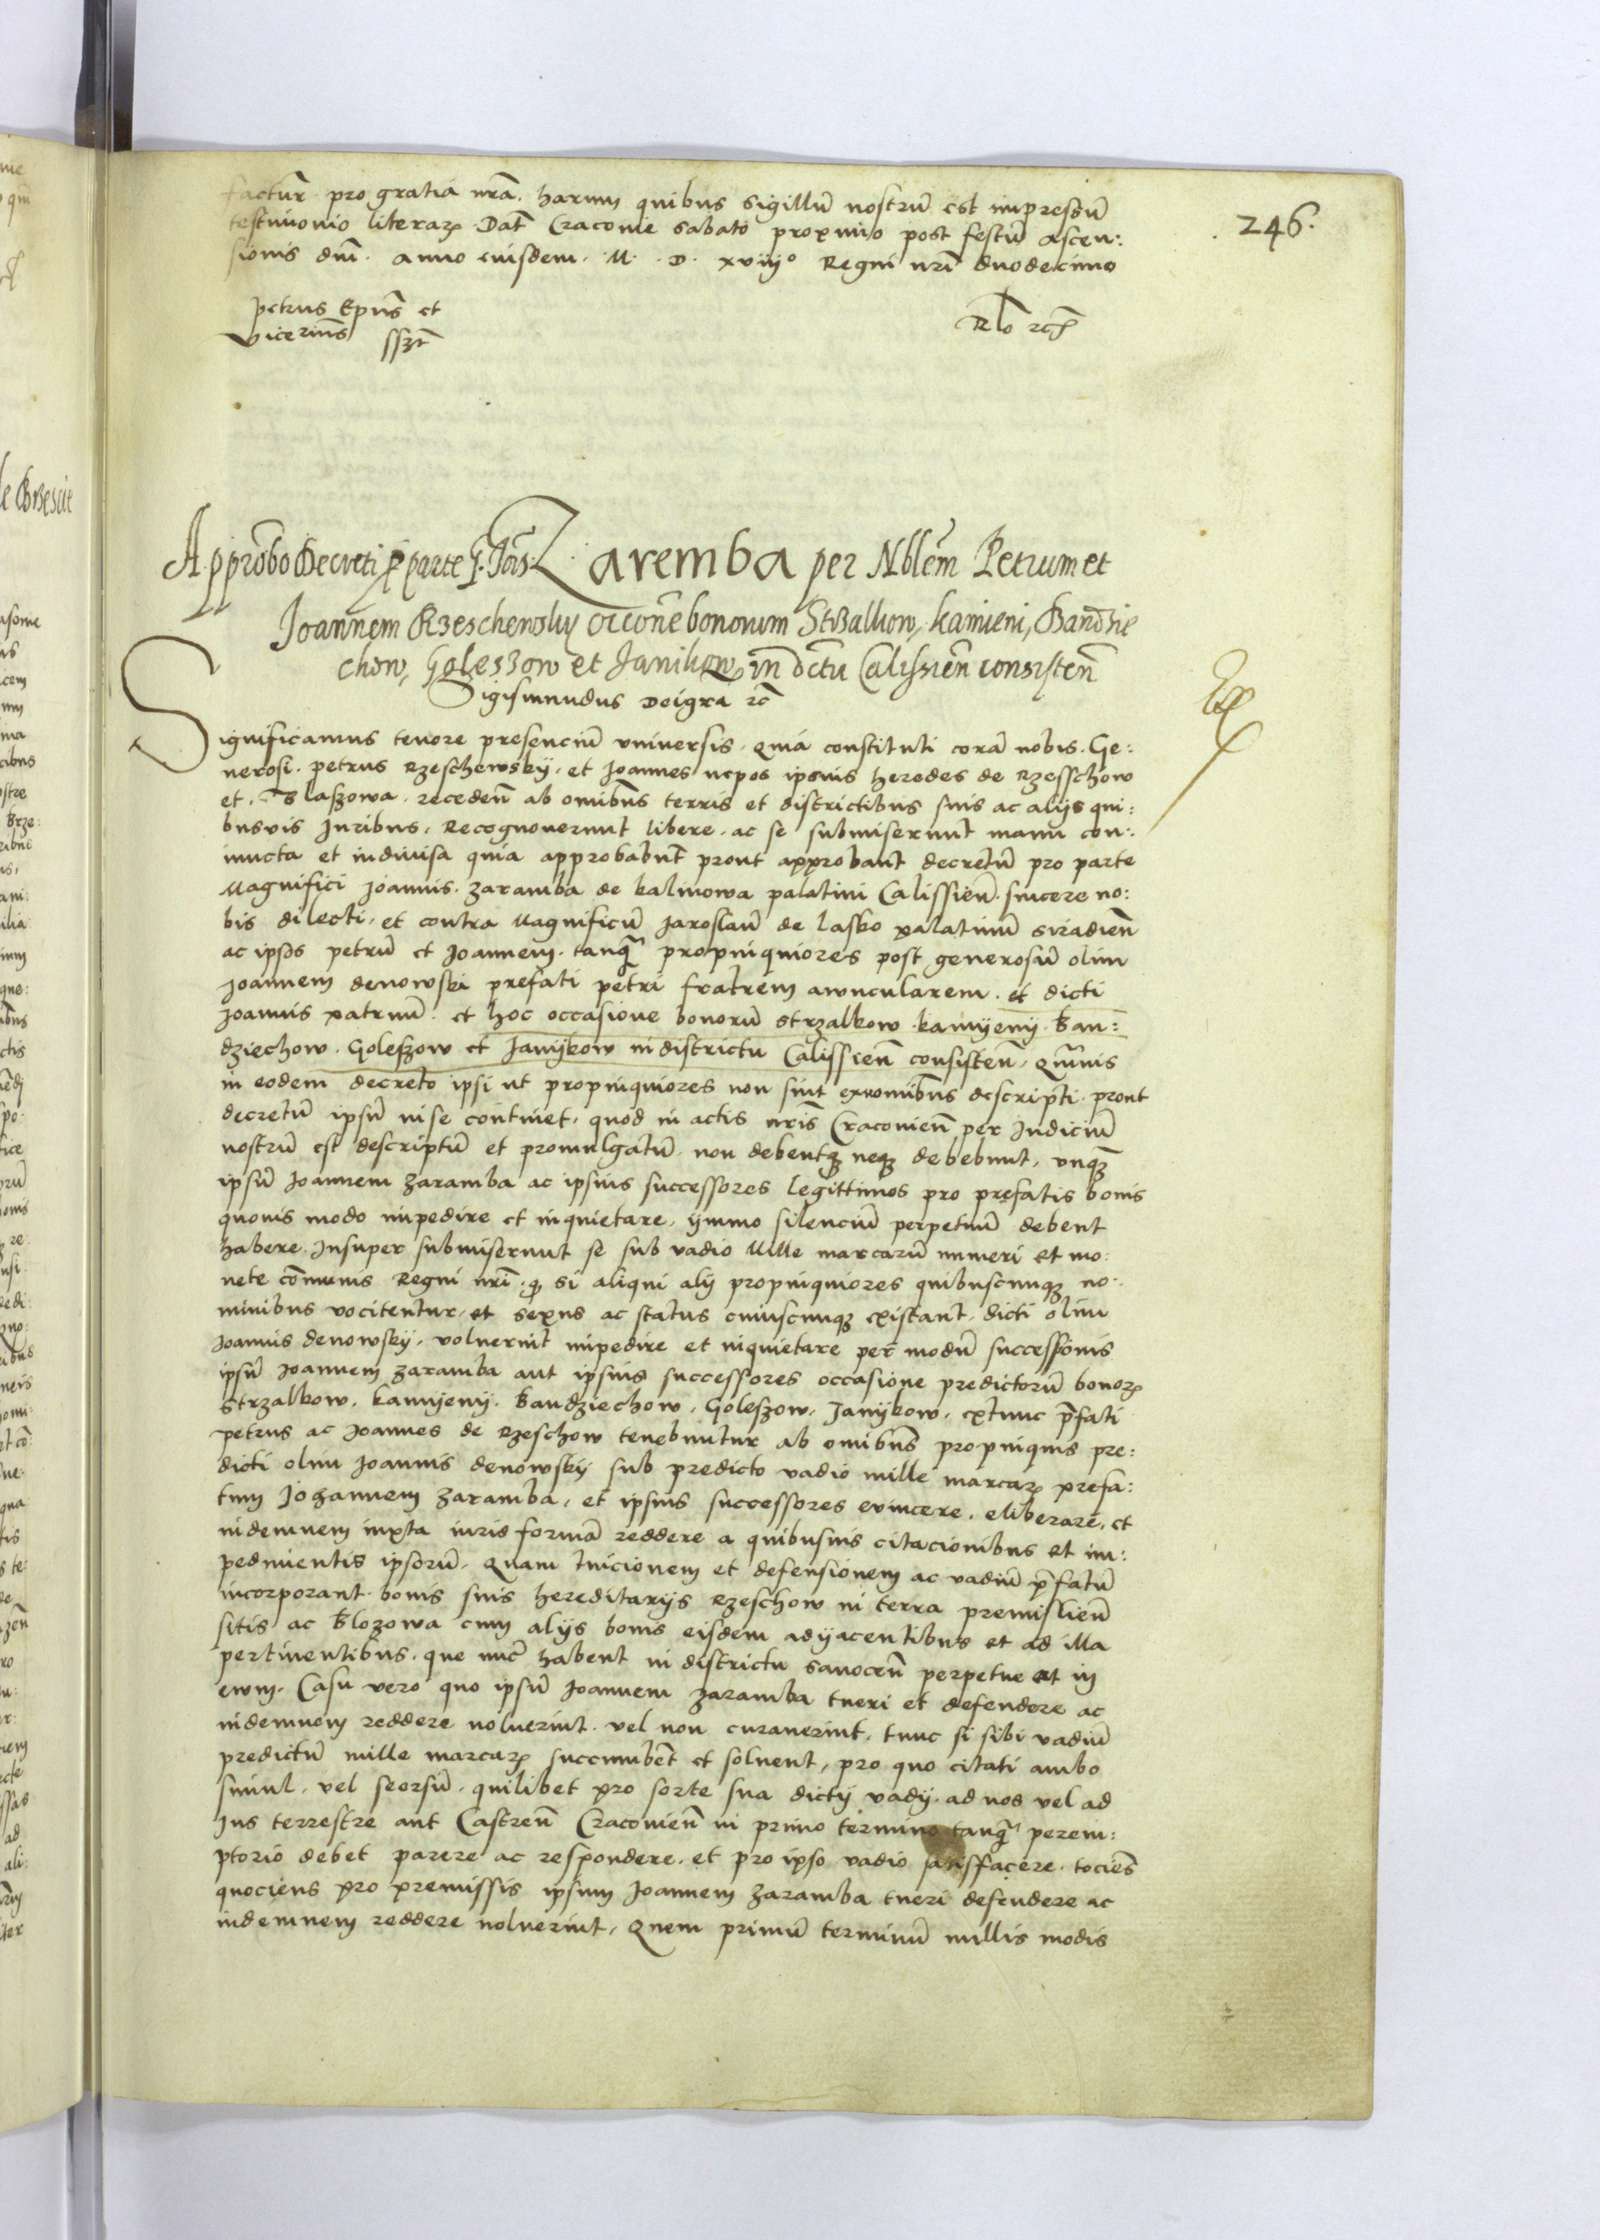 246.
factur pro gratia nra. harum quibus sigillu nostru est impressu
testimonio literar Dat Cracovie sabato proximo post festu ascen:
sionis dni. anno eiusdem. M. D. xviij° Regni nri duodecimo
petrus Epus et
vicerius sszt
Rlo rch
Approbo Decreti pparte Zaremba per Nblem Petrum et
Joannem Rzeschewsky occone bonorum Strzalkow, kamieni, Bandzie
chow, Goleszow et Janikow in dctu Calissien consisten
Sigismundus Deigra rc
Significamus tenore presenciu universis. quia constituti cora nobis. Ge:
nerosi. petrus Rzeschewskij. et Joannes nepos ipsius heredes de Rzesschow
et. Blaszowa. receden ab omibus terris et districtibus suis ac alijs qui:
busvis Juribus. Recognoverunt libere. ac se submiserunt manu con:
iuncta et indivisa quia approbabut prout approbant decretu pro parte
Magnifici Joannis. zaramba de kalinowa palatini Calissien. sincere no:
bis dilecti. et contra Magnificu Jaroslau de lasko palatinu siradien
ac ipsos petru et Joannem. tanq propinquiores post generosu olim
Joannem denowski prefati petri fratrem awncularem. et dicti
Joannis patruu. et hoc occasione bonoru strzalkow. kamyeny. Ban:
dziechow. Goleszow et Janijkow in districtu Calissien consisten. Qmvis
in eodem decreto ipsi ut propinquiores non sint exnomibus descripti. prout
decretu ipsu in se continet. quod in actis nris Cracovien per Judiciu
nostru est descriptu et promulgatu. non debentq neq debebunt. unq
ipsu Joannem zaramba ac ipsius successores legittimos pro prefatis bonis
quovis modo impedire et inquietare. ymmo silenciu perpetuu debent
habere. Insuper submiserunt se sub vadio Mille marcaru numeri et mo:
nete comunis Regni nri. q si aliqui alij propinquiores quibuscunq no:
minibus vocitentur. et sexus ac status cuiuscunq existant. dicti olim
Joannis denowskij. voluerint impedire et inquietare per modu successionis
ipsu Joannem zaramba aut ipsius successores occasione predictoru bonor
Strzalkow. kamyeny. Bandziechow. Goleszow. Janijkow. extunc pfati
petrus ac Joannes de Rzeschow tenebuntur ab omibus propinquis pre:
dicti olim Joannis denowskij sub predicto vadio mille marcar prefa:
tum Johannem zaramba. et ipsius successores evincere. eliberare. et
indemnem iuxta iuris forma reddere a quibusvis citacionibus et im:
pedimentis ipsoru. Quam tuicionem et defensionem ac vadiu pfatu
incorporant bonis suis hereditarijs Rzeschow in terra premislien
sitis ac Blozowa cum alijs bonis eisdem adijacentibus et ad illa
pertinentibus. que nuc habent in districtu sanocen perpetue et in
ewm. Casu vero quo ipsu Joannem zaramba tueri et defendere ac
indemnem reddere noluerint. vel non curaverint. tunc si sibi vadiu
predictu mille marcar succumbet et solvent, pro quo citati ambo
simul. vel seorsu. quilibet pro sorte sua dictij vadij. ad nos vel ad
Jus terrestre aut Castren Cracovien in primo termino tanq perem:
ptorio debet parere ac respondere. et pro ipso vadio satisfacere. tocies
quociens pro premissis ipsum Joannem zaramba tueri defendere ac
indemnem reddere noluerint. Quem primu terminu nullis modis